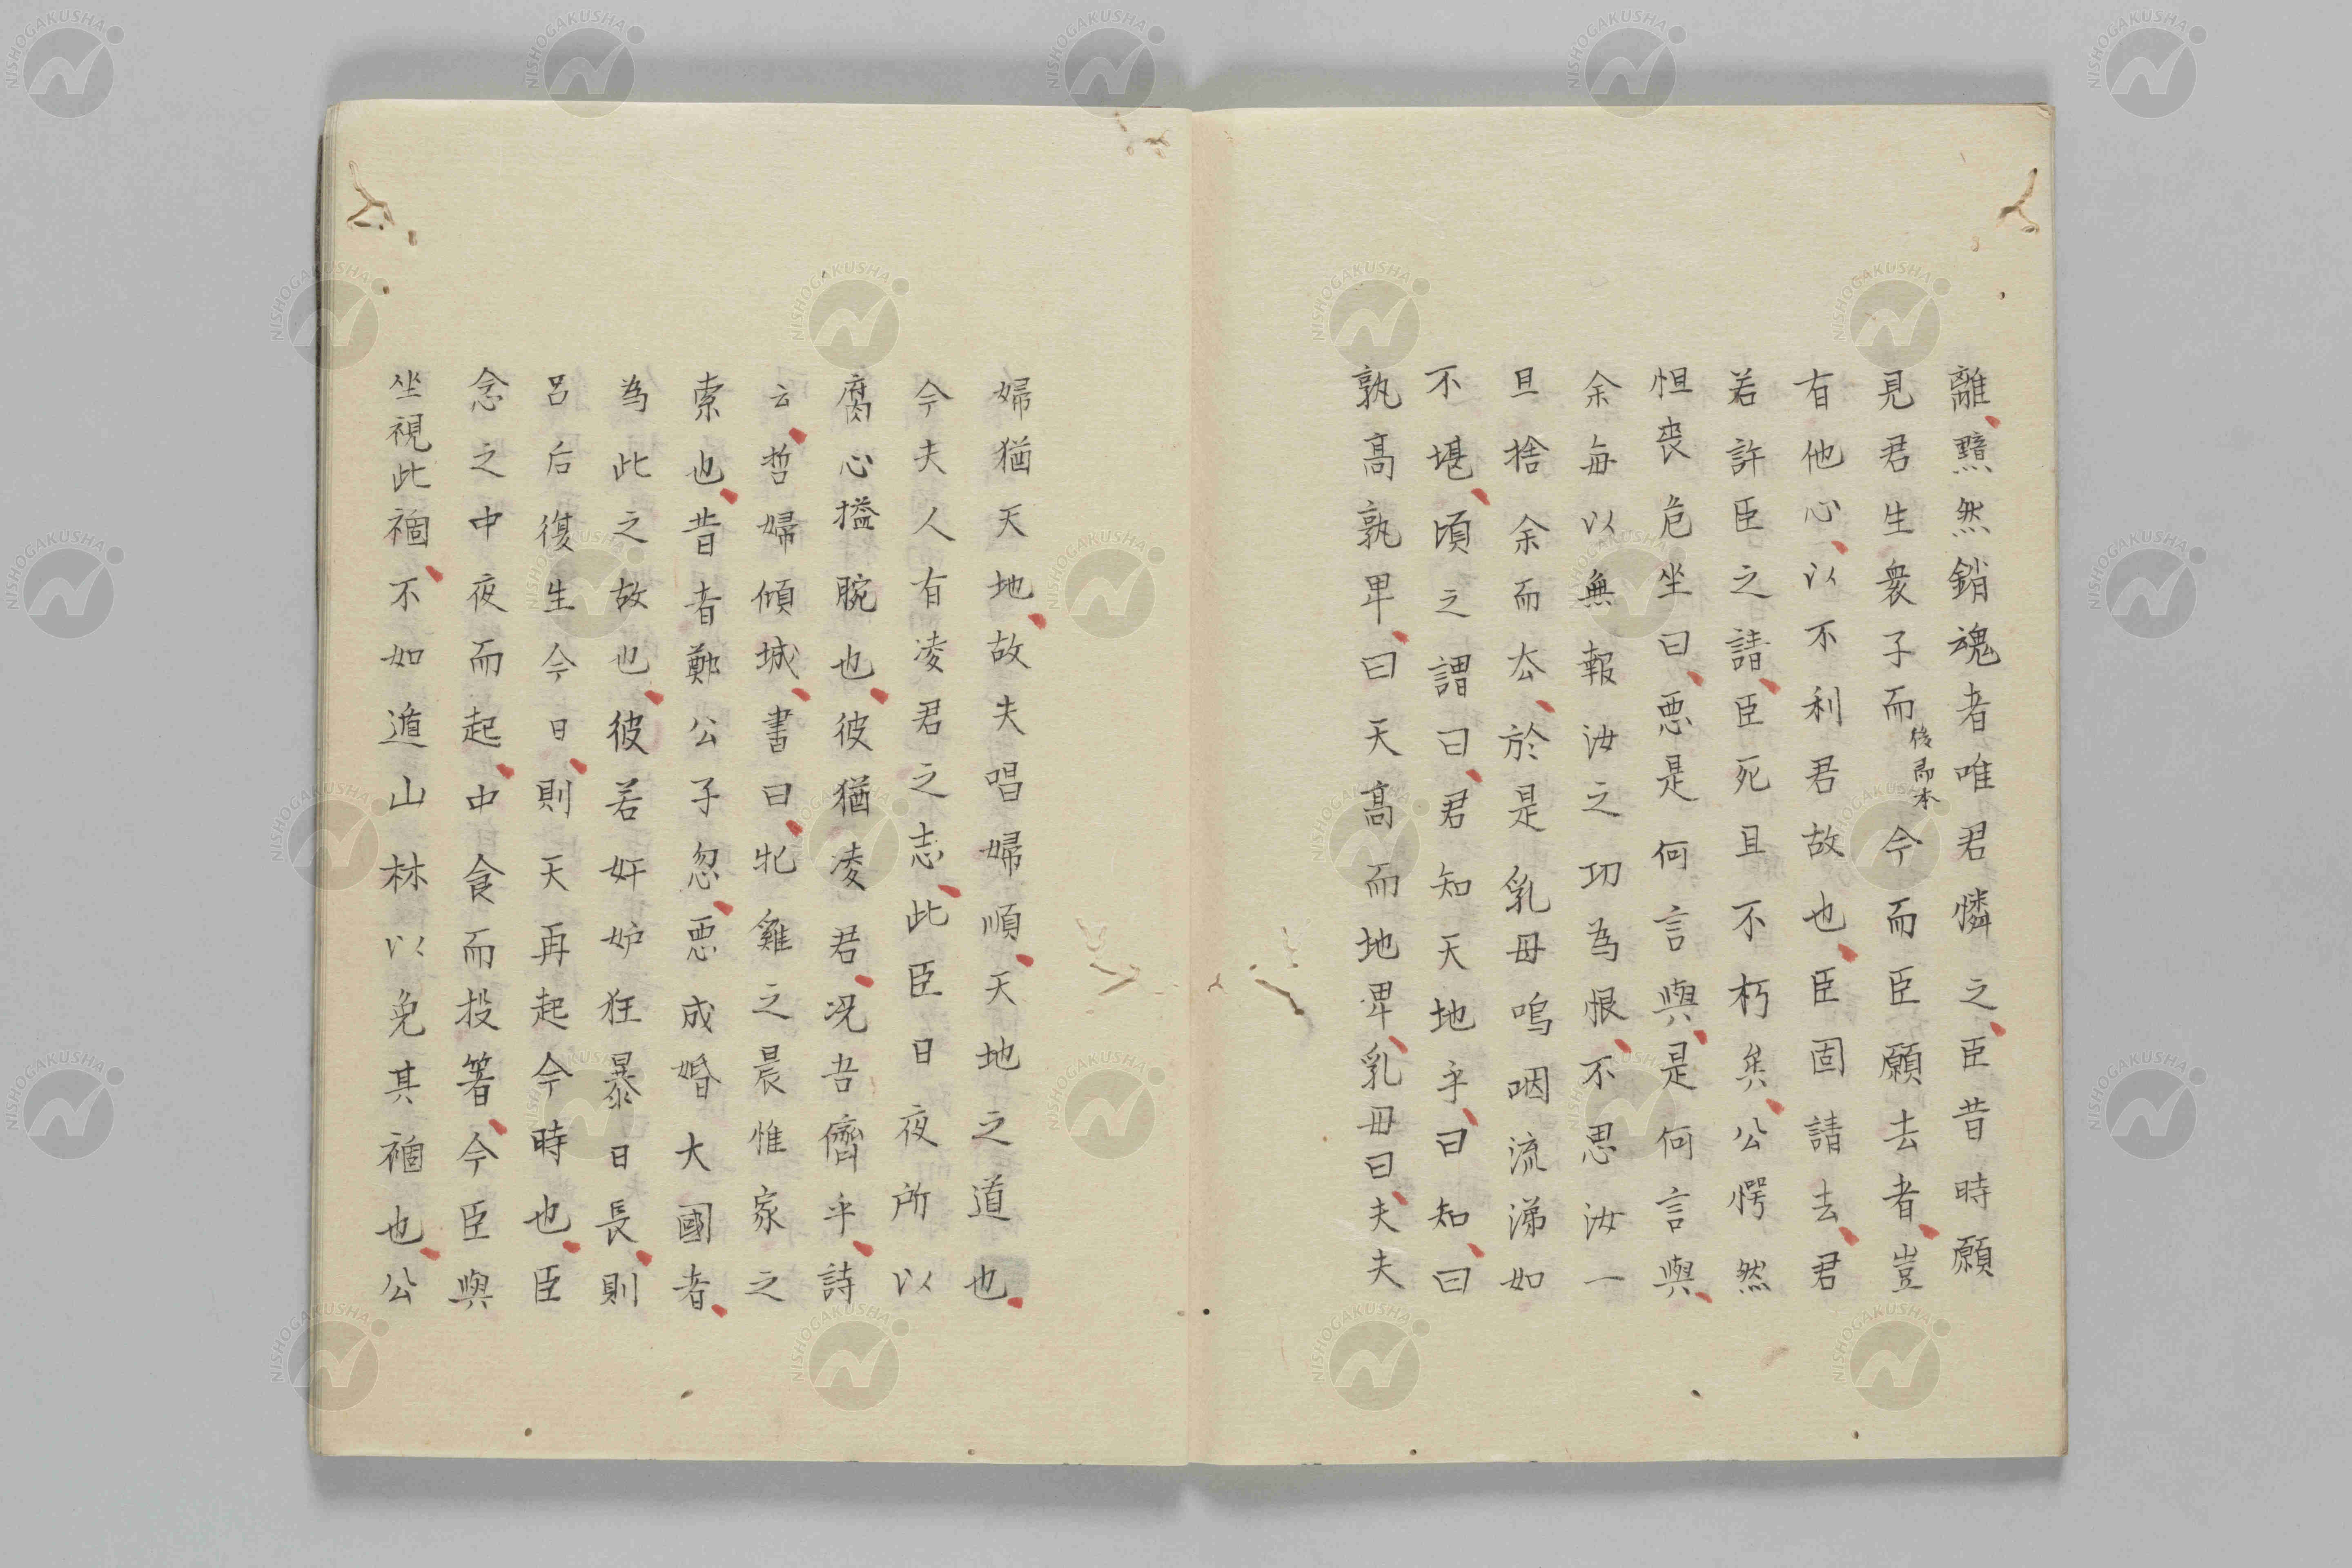 離黯然銷魂者唯君憐之臣昔時願
見君生衆子而後即本今而臣願去者豈
有他心以不利君故也臣固請去君
若許臣之請臣死且不朽矣公愕然
怛喪危坐曰悪是何言與是何言與
余毎以無報汝之功為恨不思汝一
旦捨余而厺於是乳母嗚咽流涕如
不堪頃之謂曰君知天地乎曰知曰
孰高孰卑曰天高而地卑乳母曰夫夫
婦猶天地故夫唱婦順天地之道也
今夫人有凌君之志此臣日夜所以
腐心搤腕也彼猶凌君况吾儕乎詩
云哲婦傾城書曰牝雞之晨惟家之
索也昔者鄭公子忽悪成婚大國者
為此之故也彼若奸妒狂暴日長則
呂后復生今日則天再起今時也臣
念之中夜而起中食而投箸今臣與
坐視此禍不如遁山林以免其禍也公
NISHOGAKUSHA